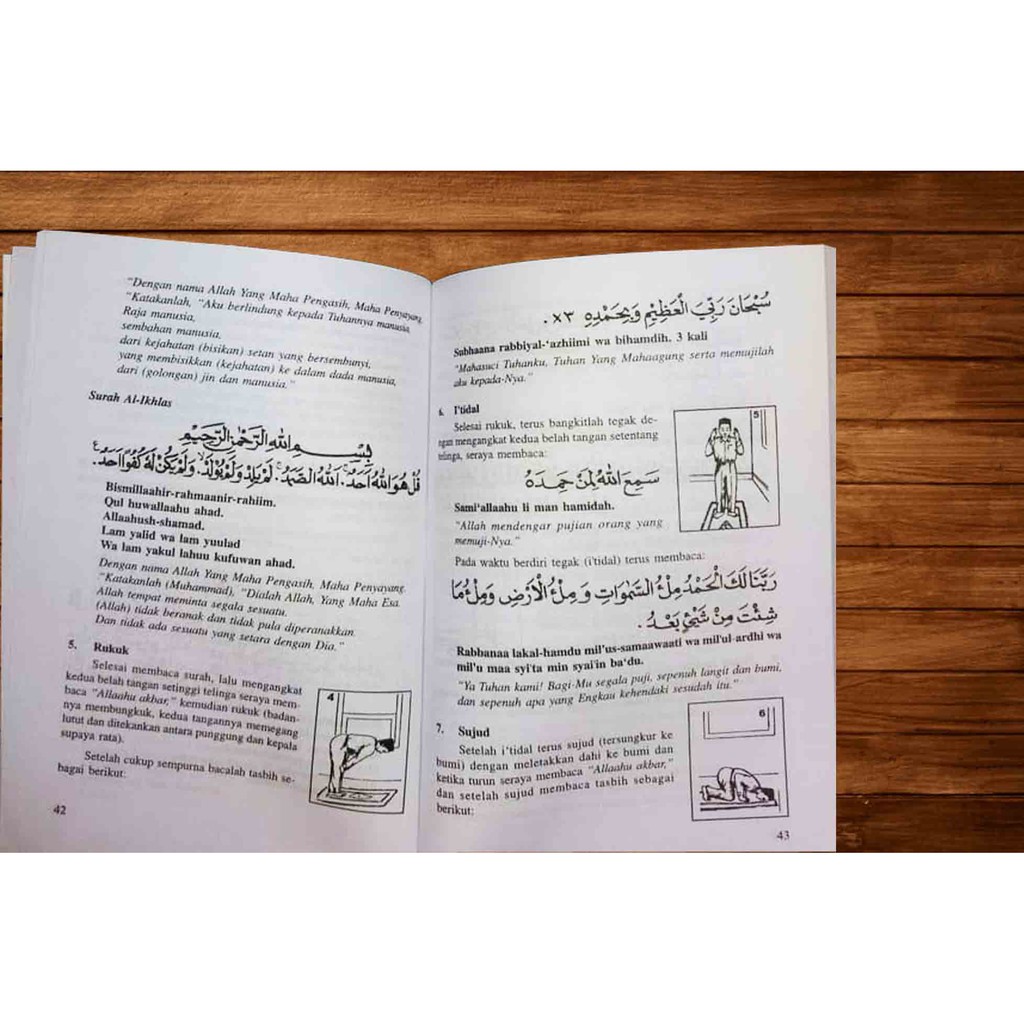 "Dengan nama Allah Yang Maha Pengasih, Maha Penyayang.
"Katakanlah, "Aku berlindung kepada Tuhannya manusia,
Raja manusia,
sembahan manusia,
dari kejahatan (bisikan) setan yang bersembunyi,
yang membisikkan (kejahatan) ke dalam dada manusia,
dari (golongan) jin dan manusia."
Surah Al-Ikhlas
بِسْمِ اللهِ الرَّحْمٰنِ الرَّحِيْمِ
قُلْ هُوَ اللهُ اَحَدٌ. اَللهُ الصَّمَدُ. لَمْ يَلِدْ وَلَمْ يُوْلَدْ. وَلَمْ يَكُنْ لَهُ كُفُوًا اَحَدٌ.
Bismillaahir-rahmaanir-rahiim.
Qul huwallaahu ahad.
Allaahush-shamad.
Lam yalid wa lam yuulad
Wa lam yakul lahuu kufuwan ahad.
Dengan nama Allah Yang Maha Pengasih, Maha Penyayang.
"Katakanlah (Muhammad), "Dialah Allah, Yang Maha Esa.
Allah tempat meminta segala sesuatu.
(Allah) tidak beranak dan tidak pula diperanakkan.
Dan tidak ada sesuatu yang setara dengan Dia."
5. Rukuk
Selesai membaca surah, lalu mengangkat
kedua belah tangan setinggi telinga seraya mem-
baca "Allaahu akbar," kemudian rukuk (badan-
nya membungkuk, kedua tangannya memegang
lutut dan ditekankan antara punggung dan kepala
supaya rata).
Setelah cukup sempurna bacalah tasbih se-
bagai berikut:
4
42
سُبْحَانَ رَبِّيَ الْعَظِيْمِ وَبِحَمْدِهِ ×٣.
Subhaana rabbiyal-'azhiimi wa bihamdih. 3 kali
"Mahasuci Tuhanku, Tuhan Yang Mahaagung serta memujilah
aku kepada-Nya."
6. I'tidal
Selesai rukuk, terus bangkitlah tegak de-
ngan mengangkat kedua belah tangan setentang
telinga, seraya membaca:
5
سَمِعَ اللهُ لِمَنْ حَمِدَهُ
Sami'allaahu li man hamidah.
"Allah mendengar pujian orang yang
memuji-Nya."
Pada waktu berdiri tegak (i'tidal) terus membaca:
رَبَّنَا لَكَ الْحَمْدُ مِلْءُ السَّمٰوَاتِ وَمِلْءُ الْاَرْضِ وَمِلْءُ مَا
شِئْتَ مِنْ شَيْءٍ بَعْدُ.
Rabbanaa lakal-hamdu mil'us-samaawaati wa mil'ul-ardhi wa
mil'u maa syi'ta min syai'in ba'du.
"Ya Tuhan kami! Bagi-Mu segala puji, sepenuh langit dan bumi,
dan sepenuh apa yang Engkau kehendaki sesudah itu."
7. Sujud
Setelah i'tidal terus sujud (tersungkur ke
bumi) dengan meletakkan dahi ke bumi dan
ketika turun seraya membaca "Allaahu akbar,"
dan setelah sujud membaca tasbih sebagai
berikut:
6
43